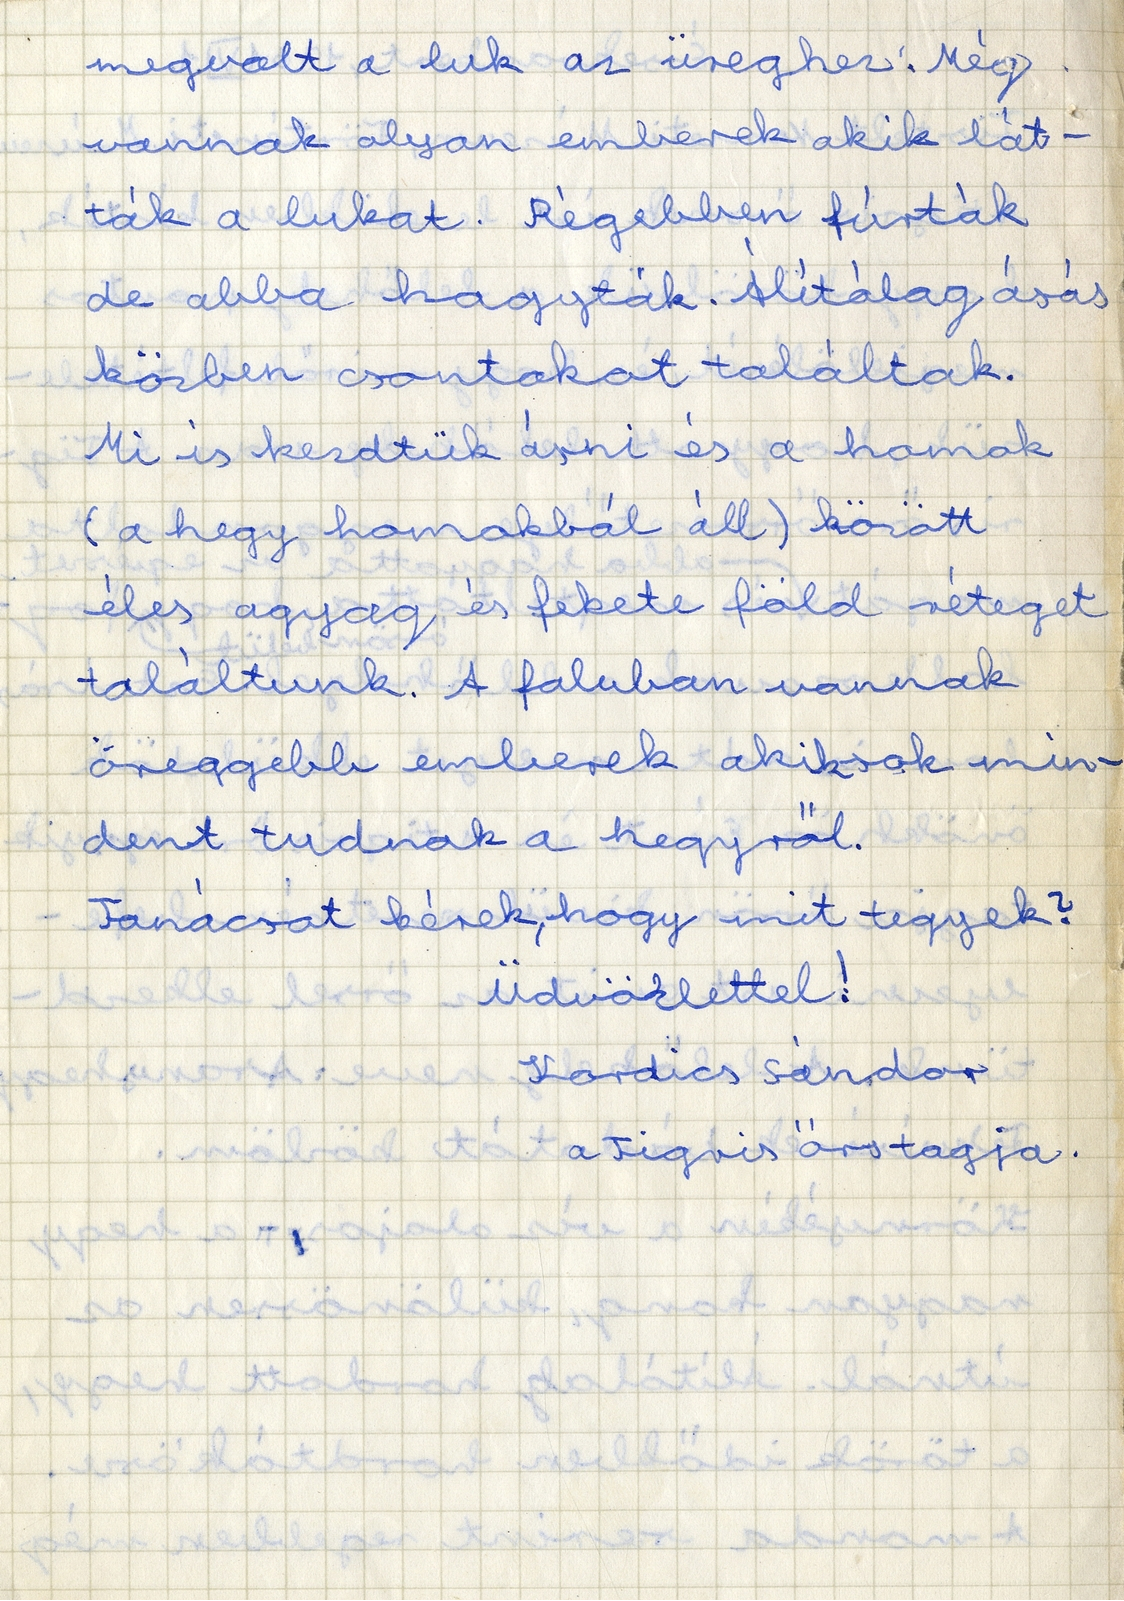 megvolt a luk az üreghez. Még
vannak olyan emberek akik lát-
ták a lukat. Régebben fúrták
de abba hagyták. Álítálag ásás
közben csontokat találtak.
Mi is kezdtük ásni és a homok
(a hegy homokból áll) között
éles agyag és fekete föld réteget
találtunk. A faluban vannak
öreggebb emberek akiksok min-
dent tudnak a hegyről.
Tanácsot kérek, hogy mit tegyek?
Üdvözlettel!
Kordics Sándor
a Tigris őrs tagja.